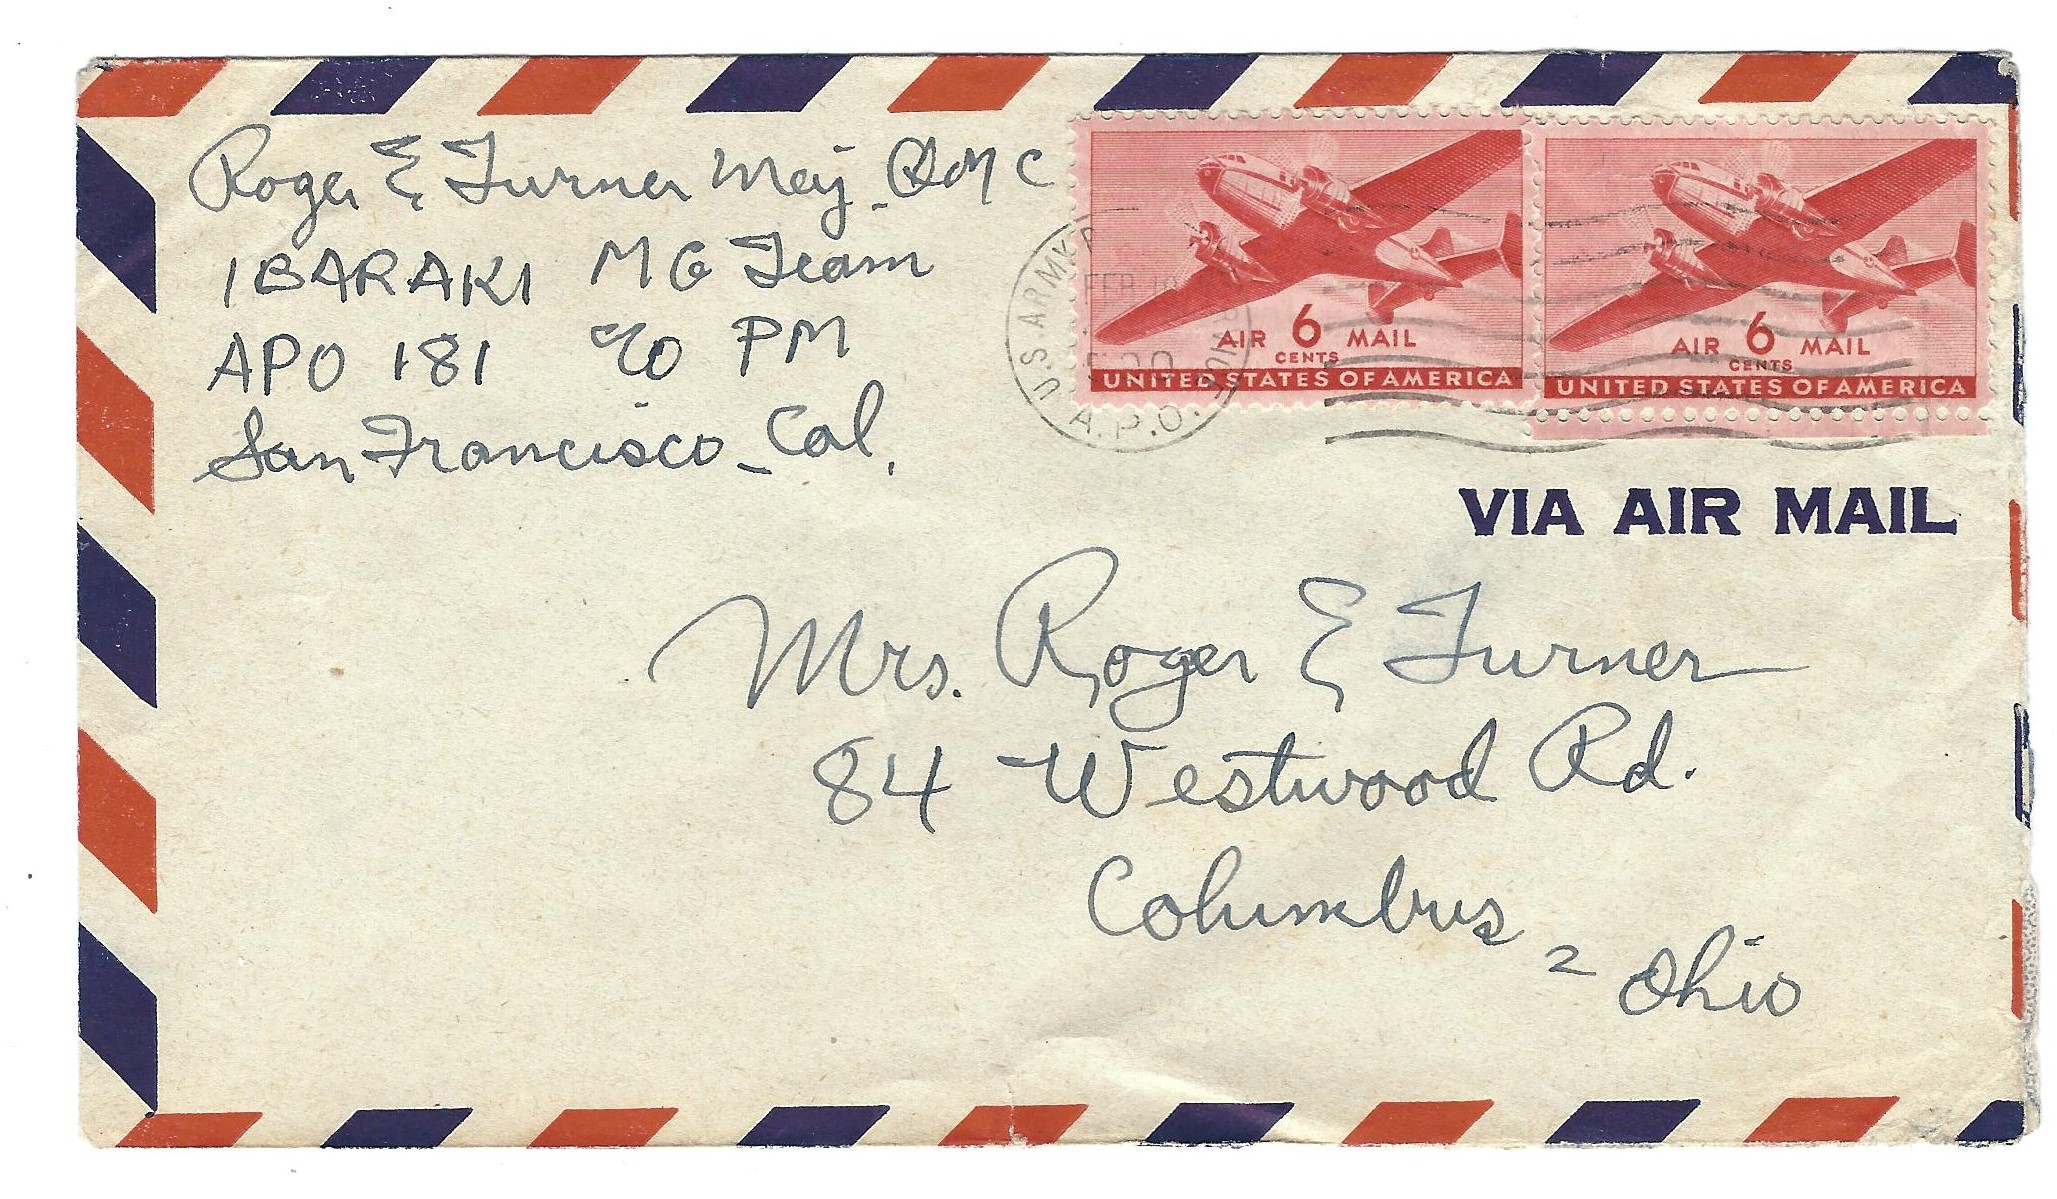 Roger E Turner Maj. QMC
IBARAKI MG Team
APO 181 c/o PM
San Francisco - Cal.
U.S. ARMY
FEB
A.P.O.
AIR 6 MAIL
CENTS
UNITED STATES OF AMERICA
AIR 6 MAIL
CENTS
UNITED STATES OF AMERICA
VIA AIR MAIL
Mrs. Roger E Turner
84 Westwood Rd.
Columbus 2 Ohio